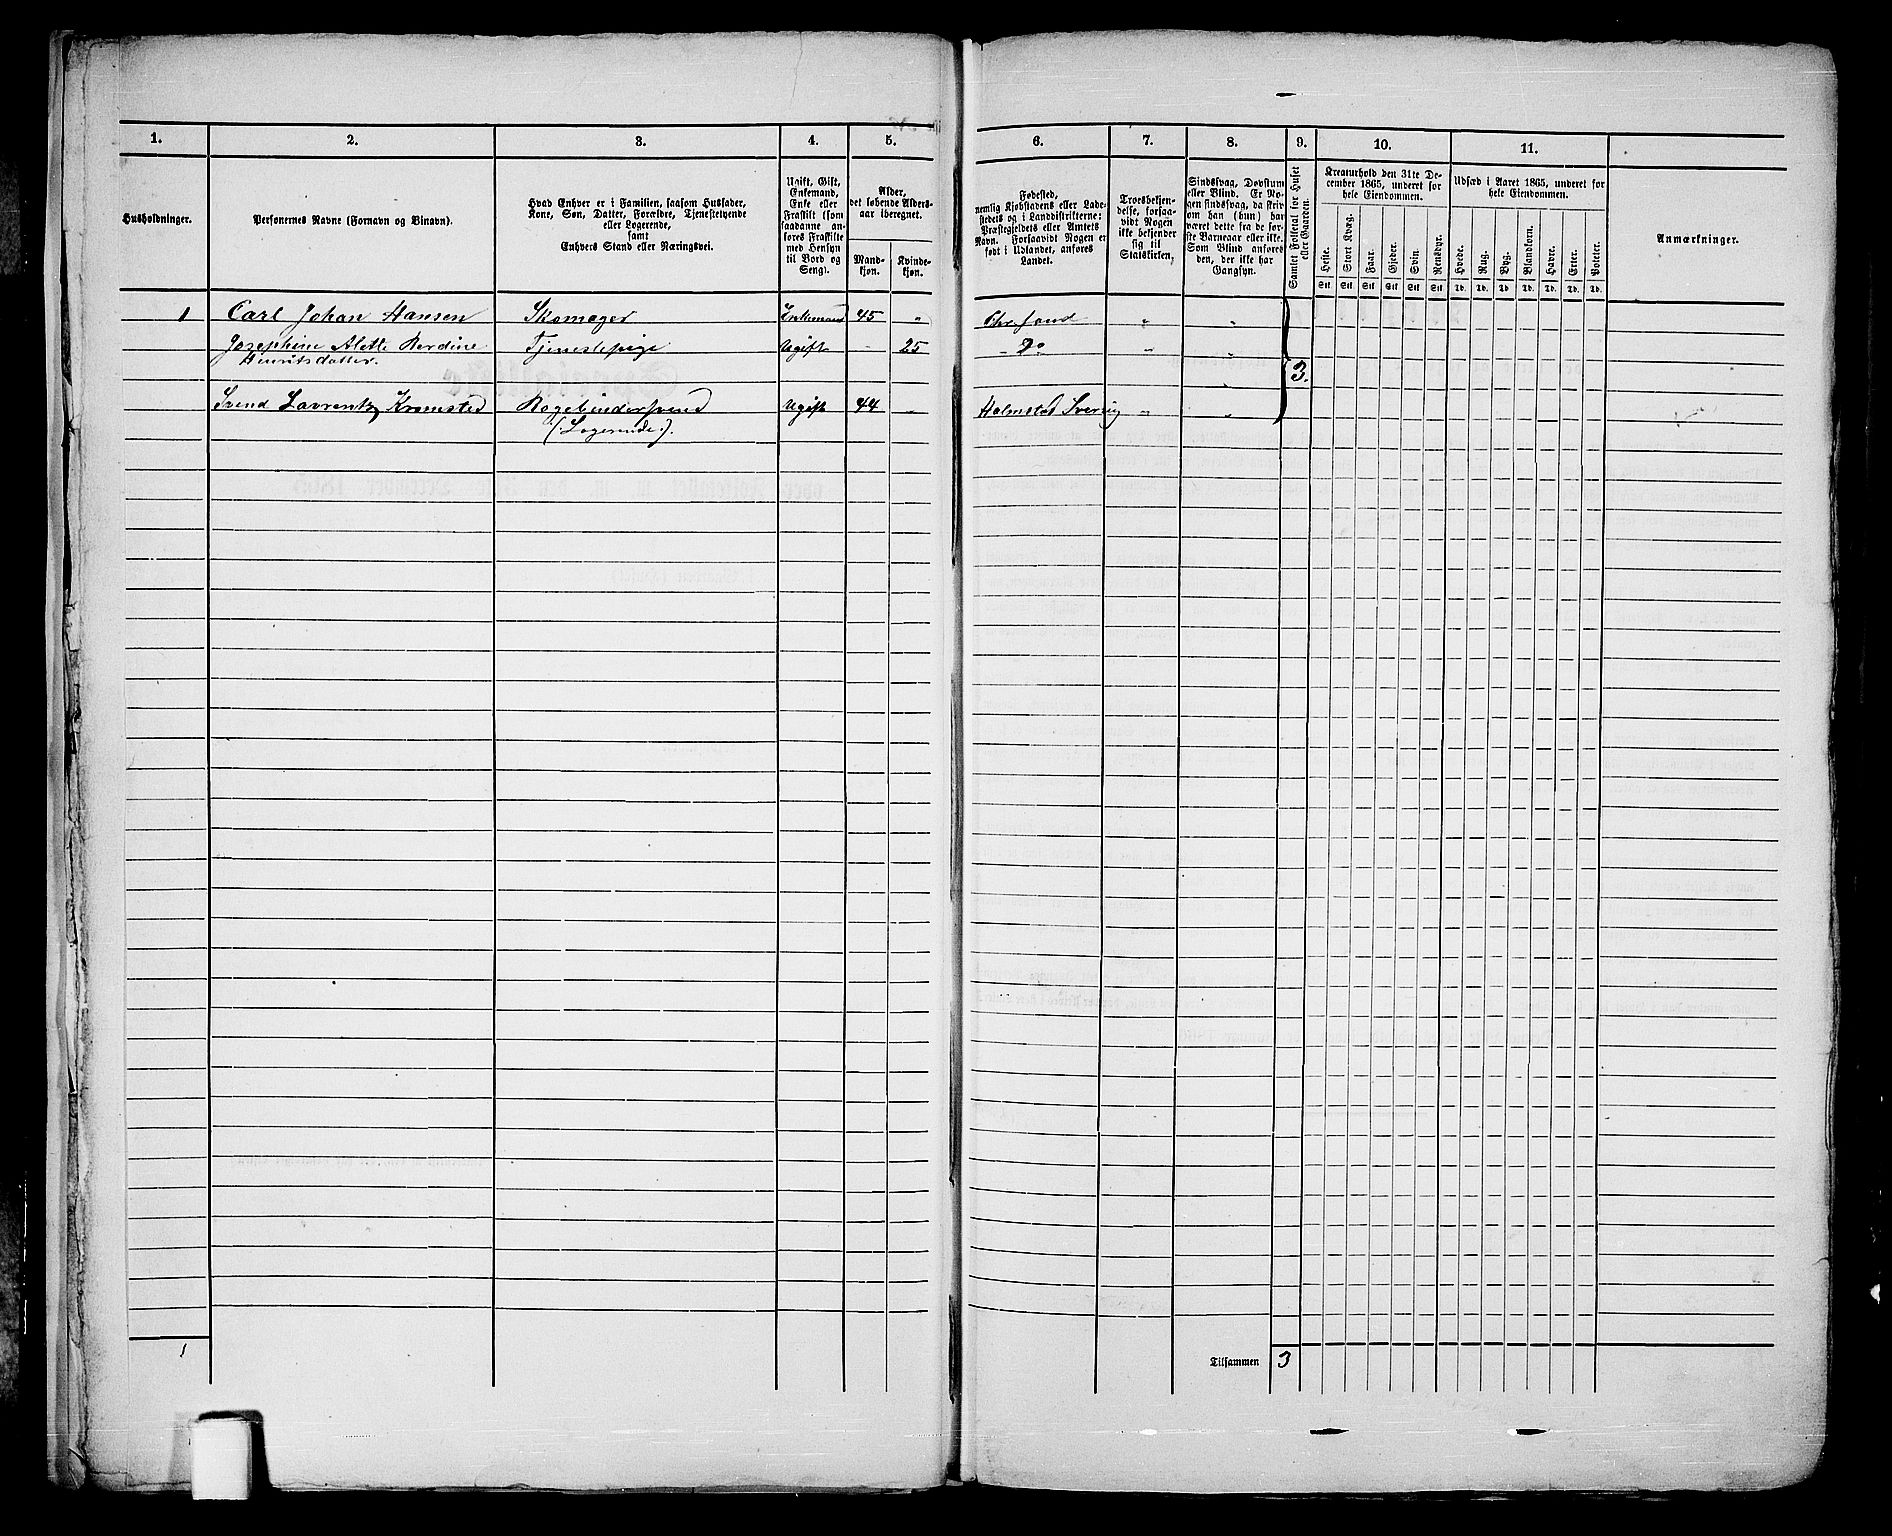 1. 2. 3. 4. 5. 6. 7. 8. 9. 10. 11.
Husholdninger.
Personernes Navne (Fornavn og Binavn).
Hvad Enhver er i Familien, saasom Husfader,
Kone, Søn, Datter, Forældre, Tjenestetyende
eller Logerende,
samt
Enhvers Stand eller Næringsvei.
Ugift, Gift,
Enkemand,
Enke eller
Fraskilt (som
saadanne an-
føres Fraskilte
med Hensyn
til Bord og
Seng).
Alder,
det løbende Alders-
aar iberegnet.
Mand-
kjøn.
Kvinde-
kjøn.
Fødested,
nemlig Kjøbstadens eller Lade-
stedets og i Landdistrikterne:
Præstegjeldets eller Amtets
Navn. Forsaavidt Nogen er
født i Udlandet, anføres
Landet.
Troesbekjen-
delse, forsaa-
vidt Nogen
ikke bekjender
sig til
Statskirken.
Sindssvag, Døvstum
eller Blind. Er No-
gen sindssvag, da skriv
om han (hun) har
været dette fra de før-
ste Barneaar eller ikke.
Som Blind anføres
den, der ikke har
Gangsyn.
Samlet Folketal for Huset
eller Gaarden.
Kreaturhold den 31te De-
cember 1865, underet for
hele Eiendommen.
Heste. Stort Kvæg. Faar. Gjeder. Svin. Rensdyr.
Stk Stk Stk Stk Stk Stk
Udsæd i Aaret 1865, underet for
hele Eiendommen.
Hvede. Rug. Byg. Blandkorn. Havre. Erter. Poteter.
Td. Td. Td. Td. Td. Td. Td.
Anmærkninger.
1 Carl Johan Hansen Skomager Enkemand 45 " Chr.sand " "
Josephine Alette Berdine Tjenestepige Ugift - 25 " Do " "
Henriksdatter.
3.
Svend Lavrentz Kromsted Bogbindersvend Ugift 44 " Halmstad Sverig " "
(:Logerende:).
1 Tilsammen 3